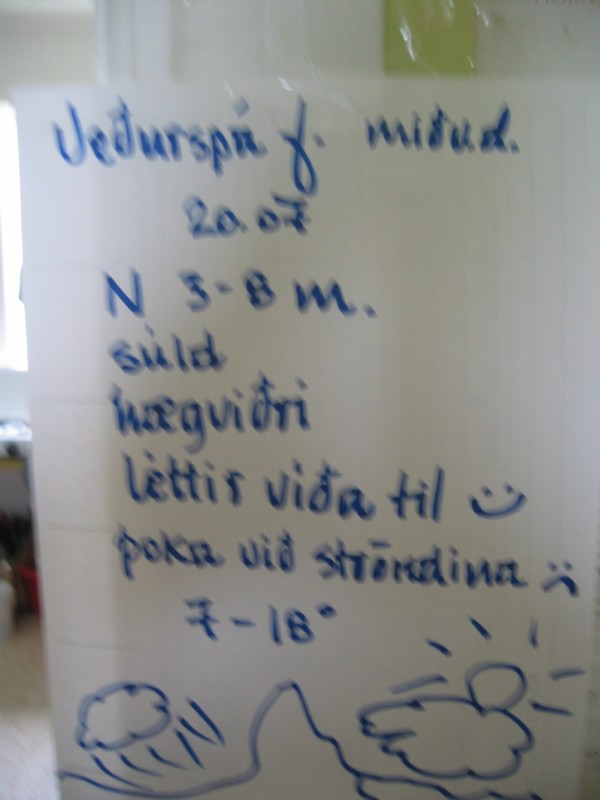 Veðurspá f. miðud.
20.07
N 3-8 m.
súld
hægviðri
Léttir víða til :)
þoka við ströndina :(
7-18°